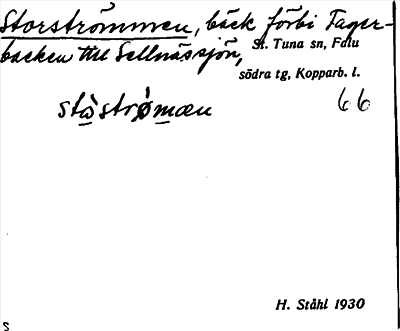 Storströmmen, bäck förbi Tager-
backen till Sellnässjön,
St. Tuna sn, Falu
södra tg, Kopparb. l.
66
H. Ståhl 1930
s